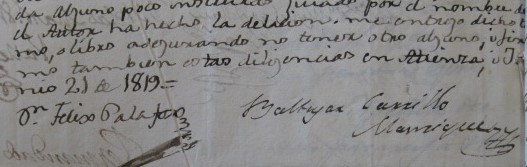 da alguno poco guiado por el nombre de
el Autor ha hecho la delicion, me entrego dicho
mo, o libro asegurando no tener otro alguno, y fir
mo tambien estas diligencias en Atienza, y Ju
nio 21 de 1819=
Dn. Felix Palafox
Baltasar Carrillo
Manrique